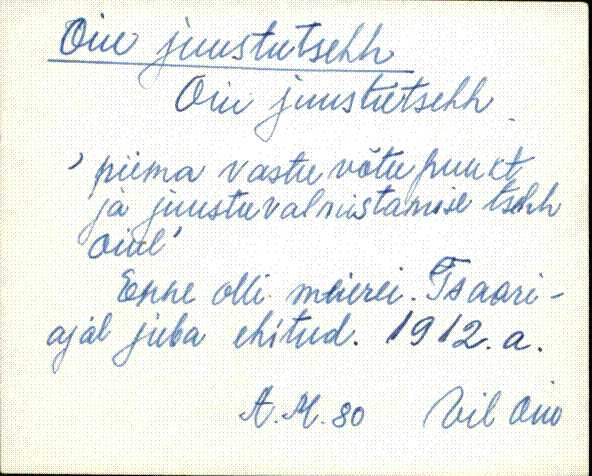 Oiu juustutsehh
Oiu juustutsehh
'piima vastuvõtu punkt
ja juustuvalmistamise tsehh
Oiul'
Enne olli meierei. Tsaari-
ajal juba ehitud. 1912. a.
A. M. 80 Vil Oiu